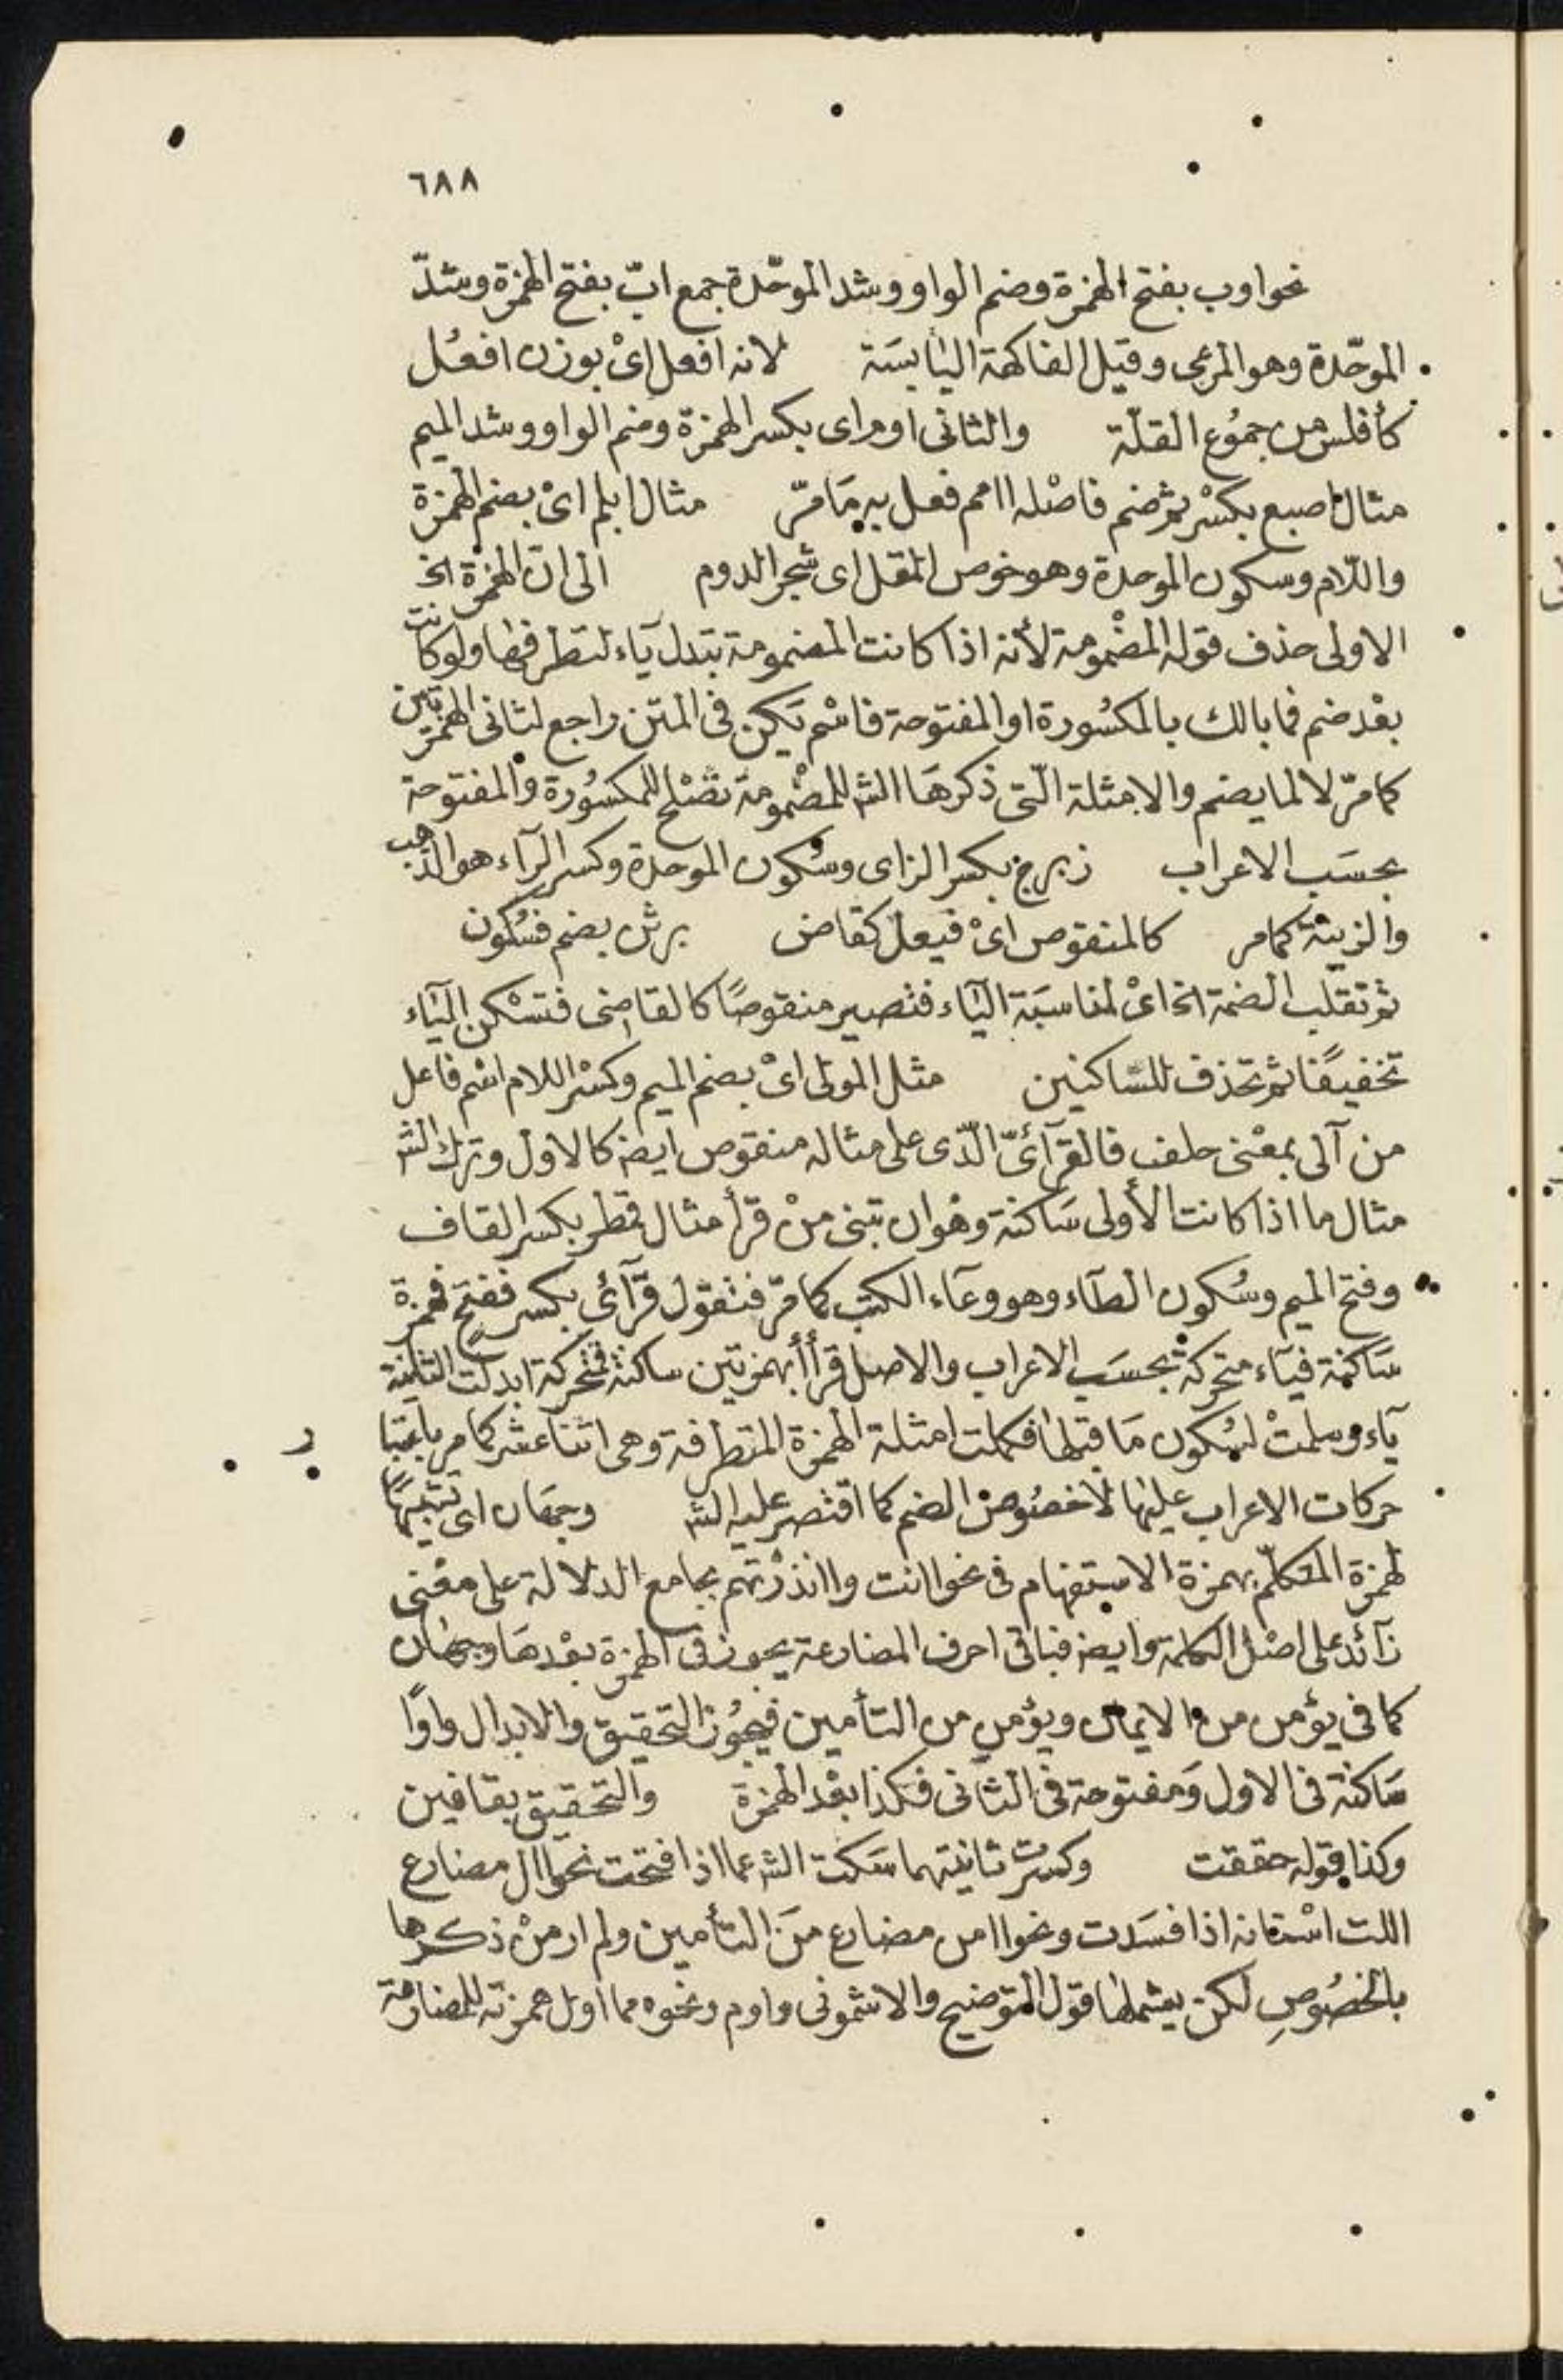 ٦٨٨
نحو اوب بفتح الهمزة وضم الواو وشد الموحّدة جمع ابّ بفتح الهمزة وشدّ
الموحّدة وهو المرعى وقيل الفاكهة اليابسَة لانه افعل اىْ بوزن افعُل
كأفلس من جموُع القلّة والثانى اوم اى بكسر الهمزة وضم الواو وشد الميم
مثال اصبع بكسْر ثم ضم فاصْله اامم فعل به مَا مرّ مثال ابلم اىْ بضم الهمزة
واللّام وسكون الموحدة وهو خوص المقل اى شجر الدوم الى انّ الهمْزة الخ
الاولى حذف قوله المضْمومة لأنه اذا كانت المضمومة تبدل يآء لتطرفها ولو كانت
بعْد ضم فما بالك بالمكسُورة او المفتوحة فاسْم يَكن فى المتن راجع لثانى الهمزتين
كما مرّ لا لما يضم والامثلة الّتى ذكرهَا الش للمضْمومة تصْلح للمكسُورة والمفتوحة
بحسَب الاعراب زبرج بكسر الزاى وسُكون الموحدة وكسر الرآء هو الذهب
والزينة كما مر كالمنقوص اىْ فيعل كقاض برثن بضم فسُكون
ثم تقلب الضمة الخ اىْ لمناسَبَة اليَاء فتصير منقوصًا كالقاضى فتسْكن اليَاء
تخفيفًا ثم تحذف للسّاكنين مثل المولى اىْ بضم الميم وكسْر اللام اسْم فاعل
من آلى بمعْنى حلف فالقرآئىّ الّذى على مثاله منقوص ايض كالاول وترك الش
مثال ما اذا كانت الأولى سَاكنة وهْو ان تبنى منْ قرأ مثال قمطر بكسر القاف
وفتح الميم وسُكون الطآء وهو وعآء الكتب كما مرّ فتقول قرآئى بكسر ففتح فهمزة
سَاكنة فيآء متحركة بحسَب الاعراب والاصل قرأأ بهمزتين ساكنة فمتحركة ابدلت الثانية
يآء وسلمتْ لسُكون مَا قبلها فكملت امثلة الهمزة المتطرفة وهى اثنتا عشر كما مر باعتبا
ر
حركات الاعراب عليهَا لا خصُوص الضم كما اقتصر عليه الش وجهَان اى تشبيهًا
لهمزة المتكلّم بهمزة الاستفهام فى نحو اانت واانذرْتهم بجامع الدلالة على معْنى
زآئد على اصْل الكلمة وايض فباقى احرف المضارعة يجوز فى الهمزة بعْدهَا وجهان
كما فى يؤمن من الايمان ويؤمن من التأمين فيجُوز التحقيق والابدال واوًا
سَاكنة فى الاول وَمفتوحة فى الثانى فكذا بعْد الهمزة والتحقيق بقافين
وكذا قوله حققت وكسرت ثانيتهما سَكت الش عما اذا فتحت نحو اال مضارع
اللت اسْنانه اذا فسَدت ونحو اامن مضارع منَ التأمين ولم ار منْ ذكرها
بالخصُوصِ لكن يشملها قول التوضيح والاشمونى واوم ونحوه مما اول همزتيه للمضارعة